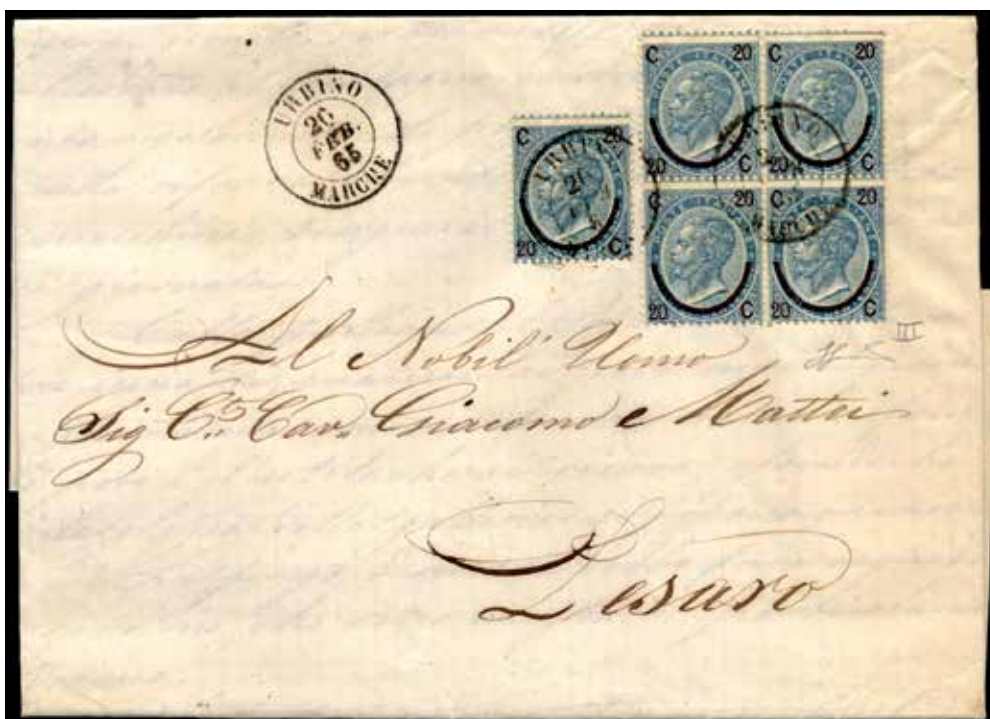 URBINO
26
FEB.
65
MARCHE
C 20
20 C
C 20
20 C
C 20
20 C
C 20
20 C
C 20
20 C
Al Nobil' Uomo
Sig C.e Cav. Giacomo Mattei
Pesaro
III